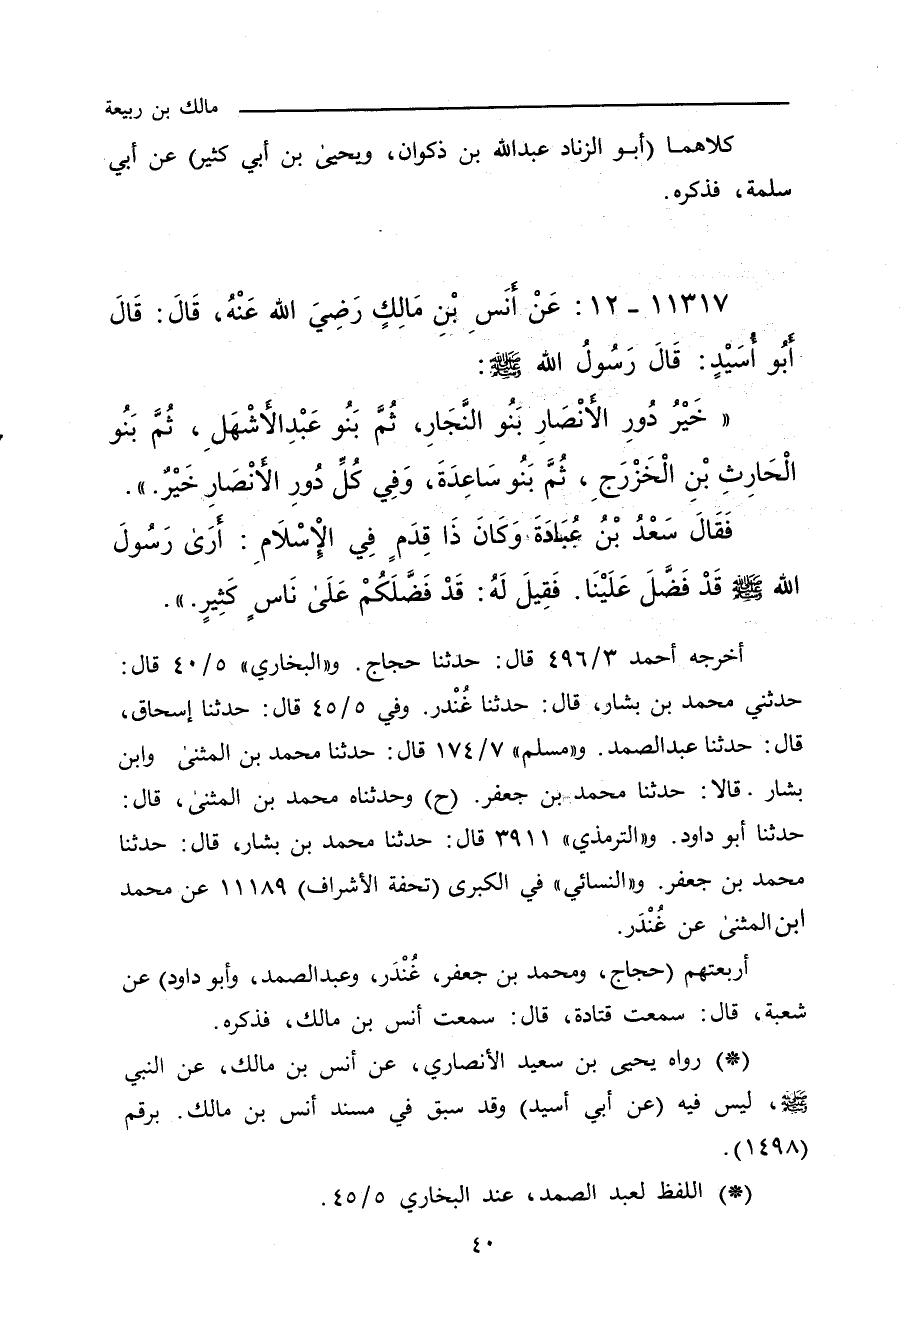 مالك بن ربيعة
كلاهمـا (أبـو الزناد عبدالله بن ذكوان، ويحيىٰ بن أبي كثير) عن أبي
سلمة، فذكره.
١١٣١٧ - ١٢: عَنْ أَنَسِ بْنِ مَالِكٍ رَضِيَ الله عَنْهُ، قَالَ: قَالَ
أَبُو أُسَيْدٍ: قَالَ رَسُولُ الله ﷺ:
« خَيْرُ دُورِ الأَنْصَارِ بَنُو النَّجَارِ، ثُمَّ بَنُو عَبْدِالأَشْهَلِ، ثُمَّ بَنُو
الْحَارِثِ بْنِ الْخَزْرَجِ، ثُمَّ بَنُو سَاعِدَةَ، وَفِي كُلِّ دُورِ الأَنْصَارِ خَيْرٌ.».
فَقَالَ سَعْدُ بْنُ عُبَادَةَ وَكَانَ ذَا قِدَمٍ فِي الإِسْلَامِ: أَرَىٰ رَسُولَ
الله ﷺ قَدْ فَضَّلَ عَلَيْنَا. فَقِيلَ لَهُ: قَدْ فَضَّلَكُمْ عَلَىٰ نَاسٍ كَثِيرٍ.».
أخرجه أحمد ٤٩٦/٣ قال: حدثنا حجاج. و«البخاري» ٤٠/٥ قال:
حدثني محمد بن بشار، قال: حدثنا غُنْدر. وفي ٤٥/٥ قال: حدثنا إسحاق،
قال: حدثنا عبدالصمد. و«مسلم» ١٧٤/٧ قال: حدثنا محمد بن المثنىٰ وابن
بشار. قالا: حدثنا محمد بن جعفر. (ح) وحدثناه محمد بن المثنىٰ، قال:
حدثنا أبو داود. و«الترمذي» ٣٩١١ قال: حدثنا محمد بن بشار، قال: حدثنا
محمد بن جعفر. و«النسائي» في الكبرى (تحفة الأشراف) ١١١٨٩ عن محمد
ابن المثنىٰ عن غُنْدَر.
أربعتهم (حجاج، ومحمد بن جعفر، غُنْدَر، وعبدالصمد، وأبو داود) عن
شعبة، قال: سمعت قتادة، قال: سمعت أنس بن مالك، فذكره.
(*) رواه يحيى بن سعيد الأنصاري، عن أنس بن مالك، عن النبي
ﷺ، ليس فيه (عن أبي أسيد) وقد سبق في مسند أنس بن مالك. برقم
(١٤٩٨).
(*) اللفظ لعبد الصمد، عند البخاري ٤٥/٥.
٤٠